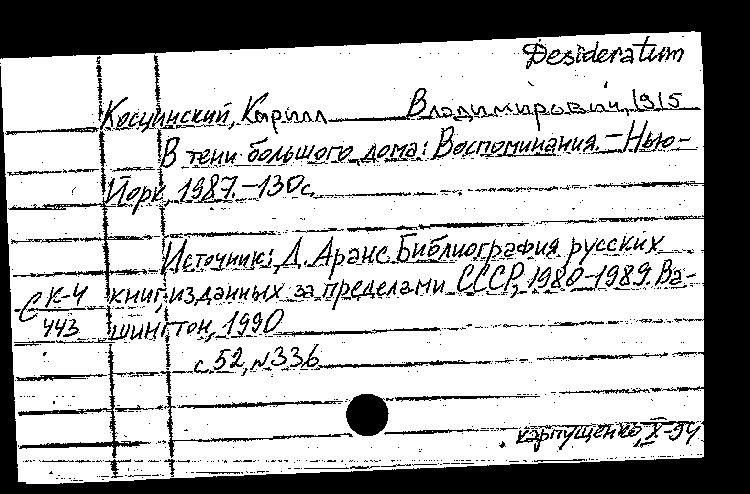 Desideratum
Косцинский, Кирилл Владимирович, 1915
В тени большого дома: Воспоминания. – Нью-
Йорк, 1987. – 130 с.
Источник: Д. Аранс. Библиография русских
книг, изданных за пределами СССР, 1980-1989. Ва-
шингтон, 1990
с 52, № 336
С К-4
443
карпущенко, X-94